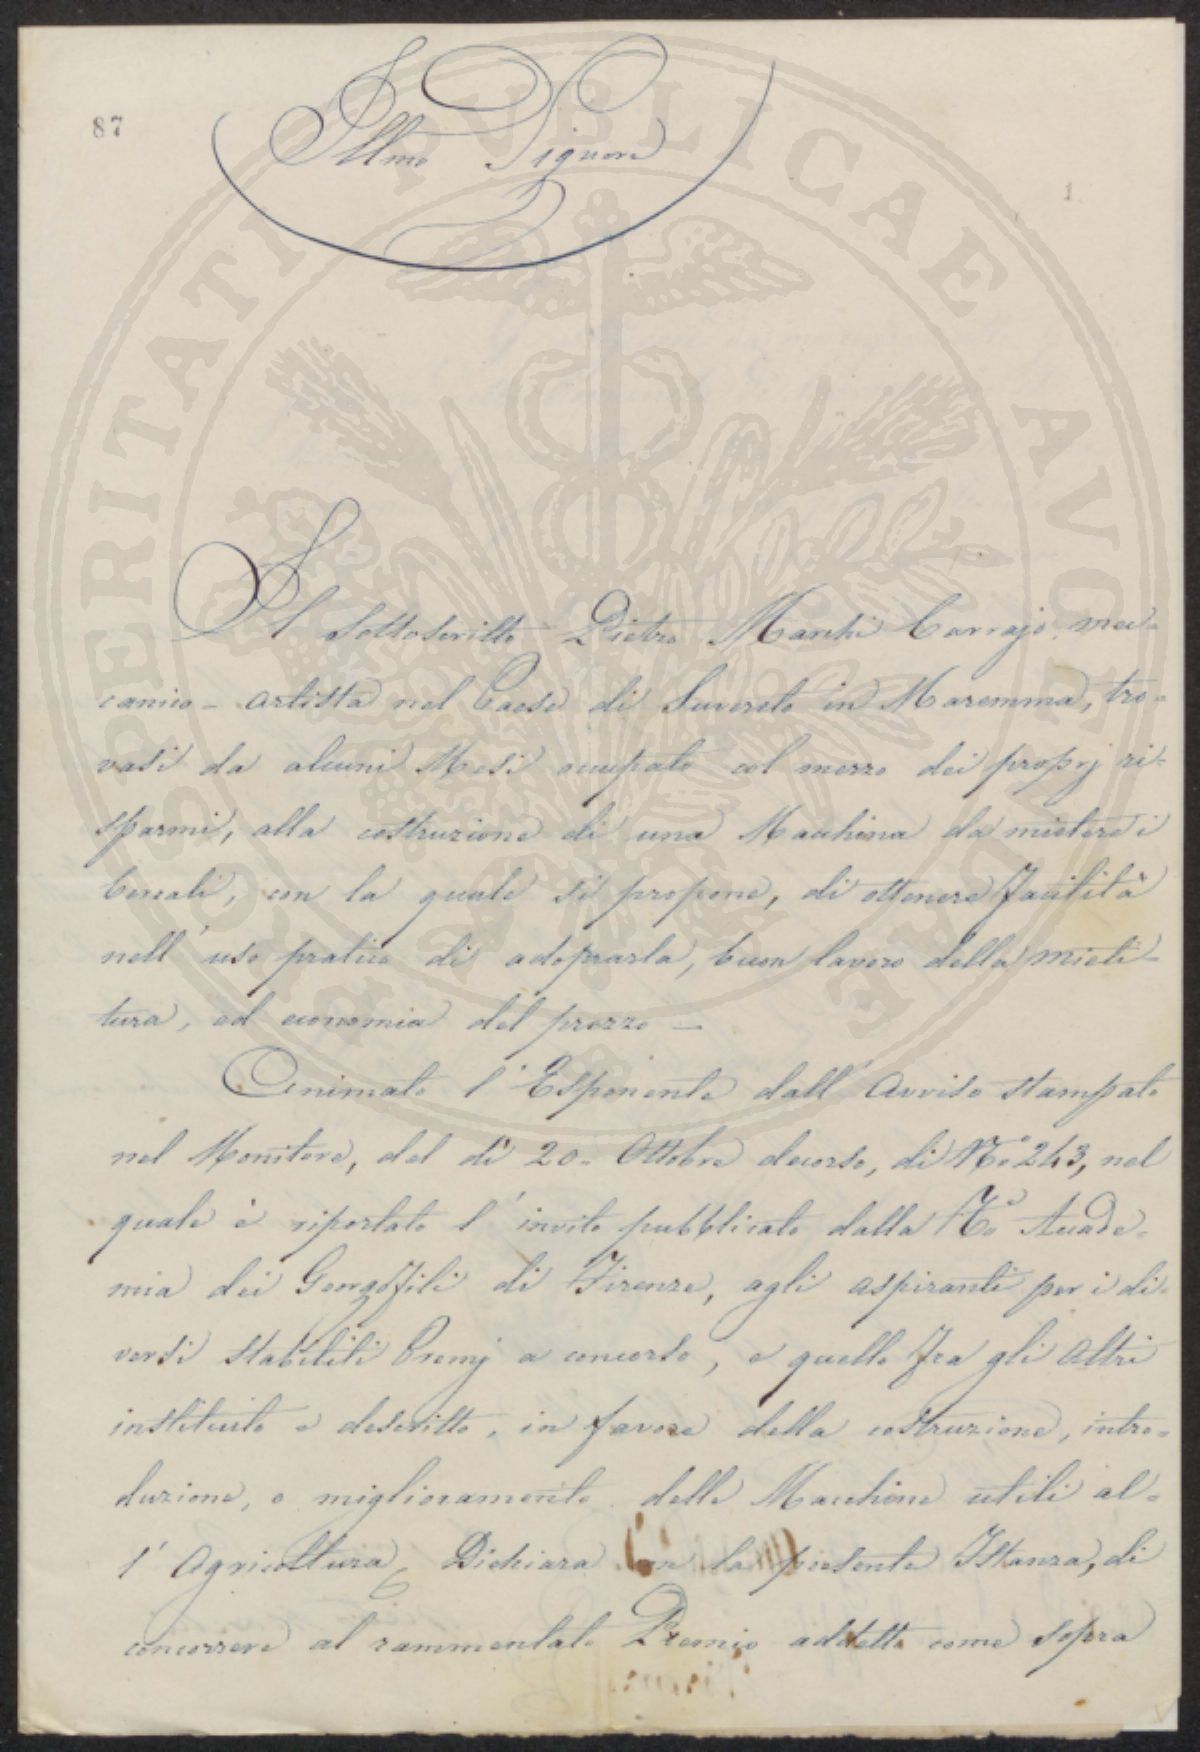 87
Illmo Signore
1
Il sottoscritto Pietro Marchi Carrajo, mec-
canico-artista nel Paese di Suvereto in Maremma, tro-
vasi da alcuni Mesi occupato col mezzo dei proprj ri-
sparmi, alla costruzione di una Macchina da mietere i
Cereali, con la quale si propone, di ottenere facilità
nell'uso pratico di adoprarla, buon lavoro della mieti-
tura, ed economia del prezzo —
Animato l'Esponente dall'Avviso stampato
nel Monitore, del dì 20. Ottobre decorso, di No 243, nel
quale è riportato l'invito pubblicato dalla Acade-
mia dei Georgofili di Firenze, agli aspiranti per i di-
versi stabiliti Premj a concorso, e quello fra gli altri
instituito e descritto, in favore della costruzione, intro-
duzione, o miglioramento delle Macchine utili al-
l'Agricoltura, Dichiara con la presente Istanza, di
concorrere al rammentato Premio addetto come sopra
PROSPERITATI PVBLICAE AVGENDAE